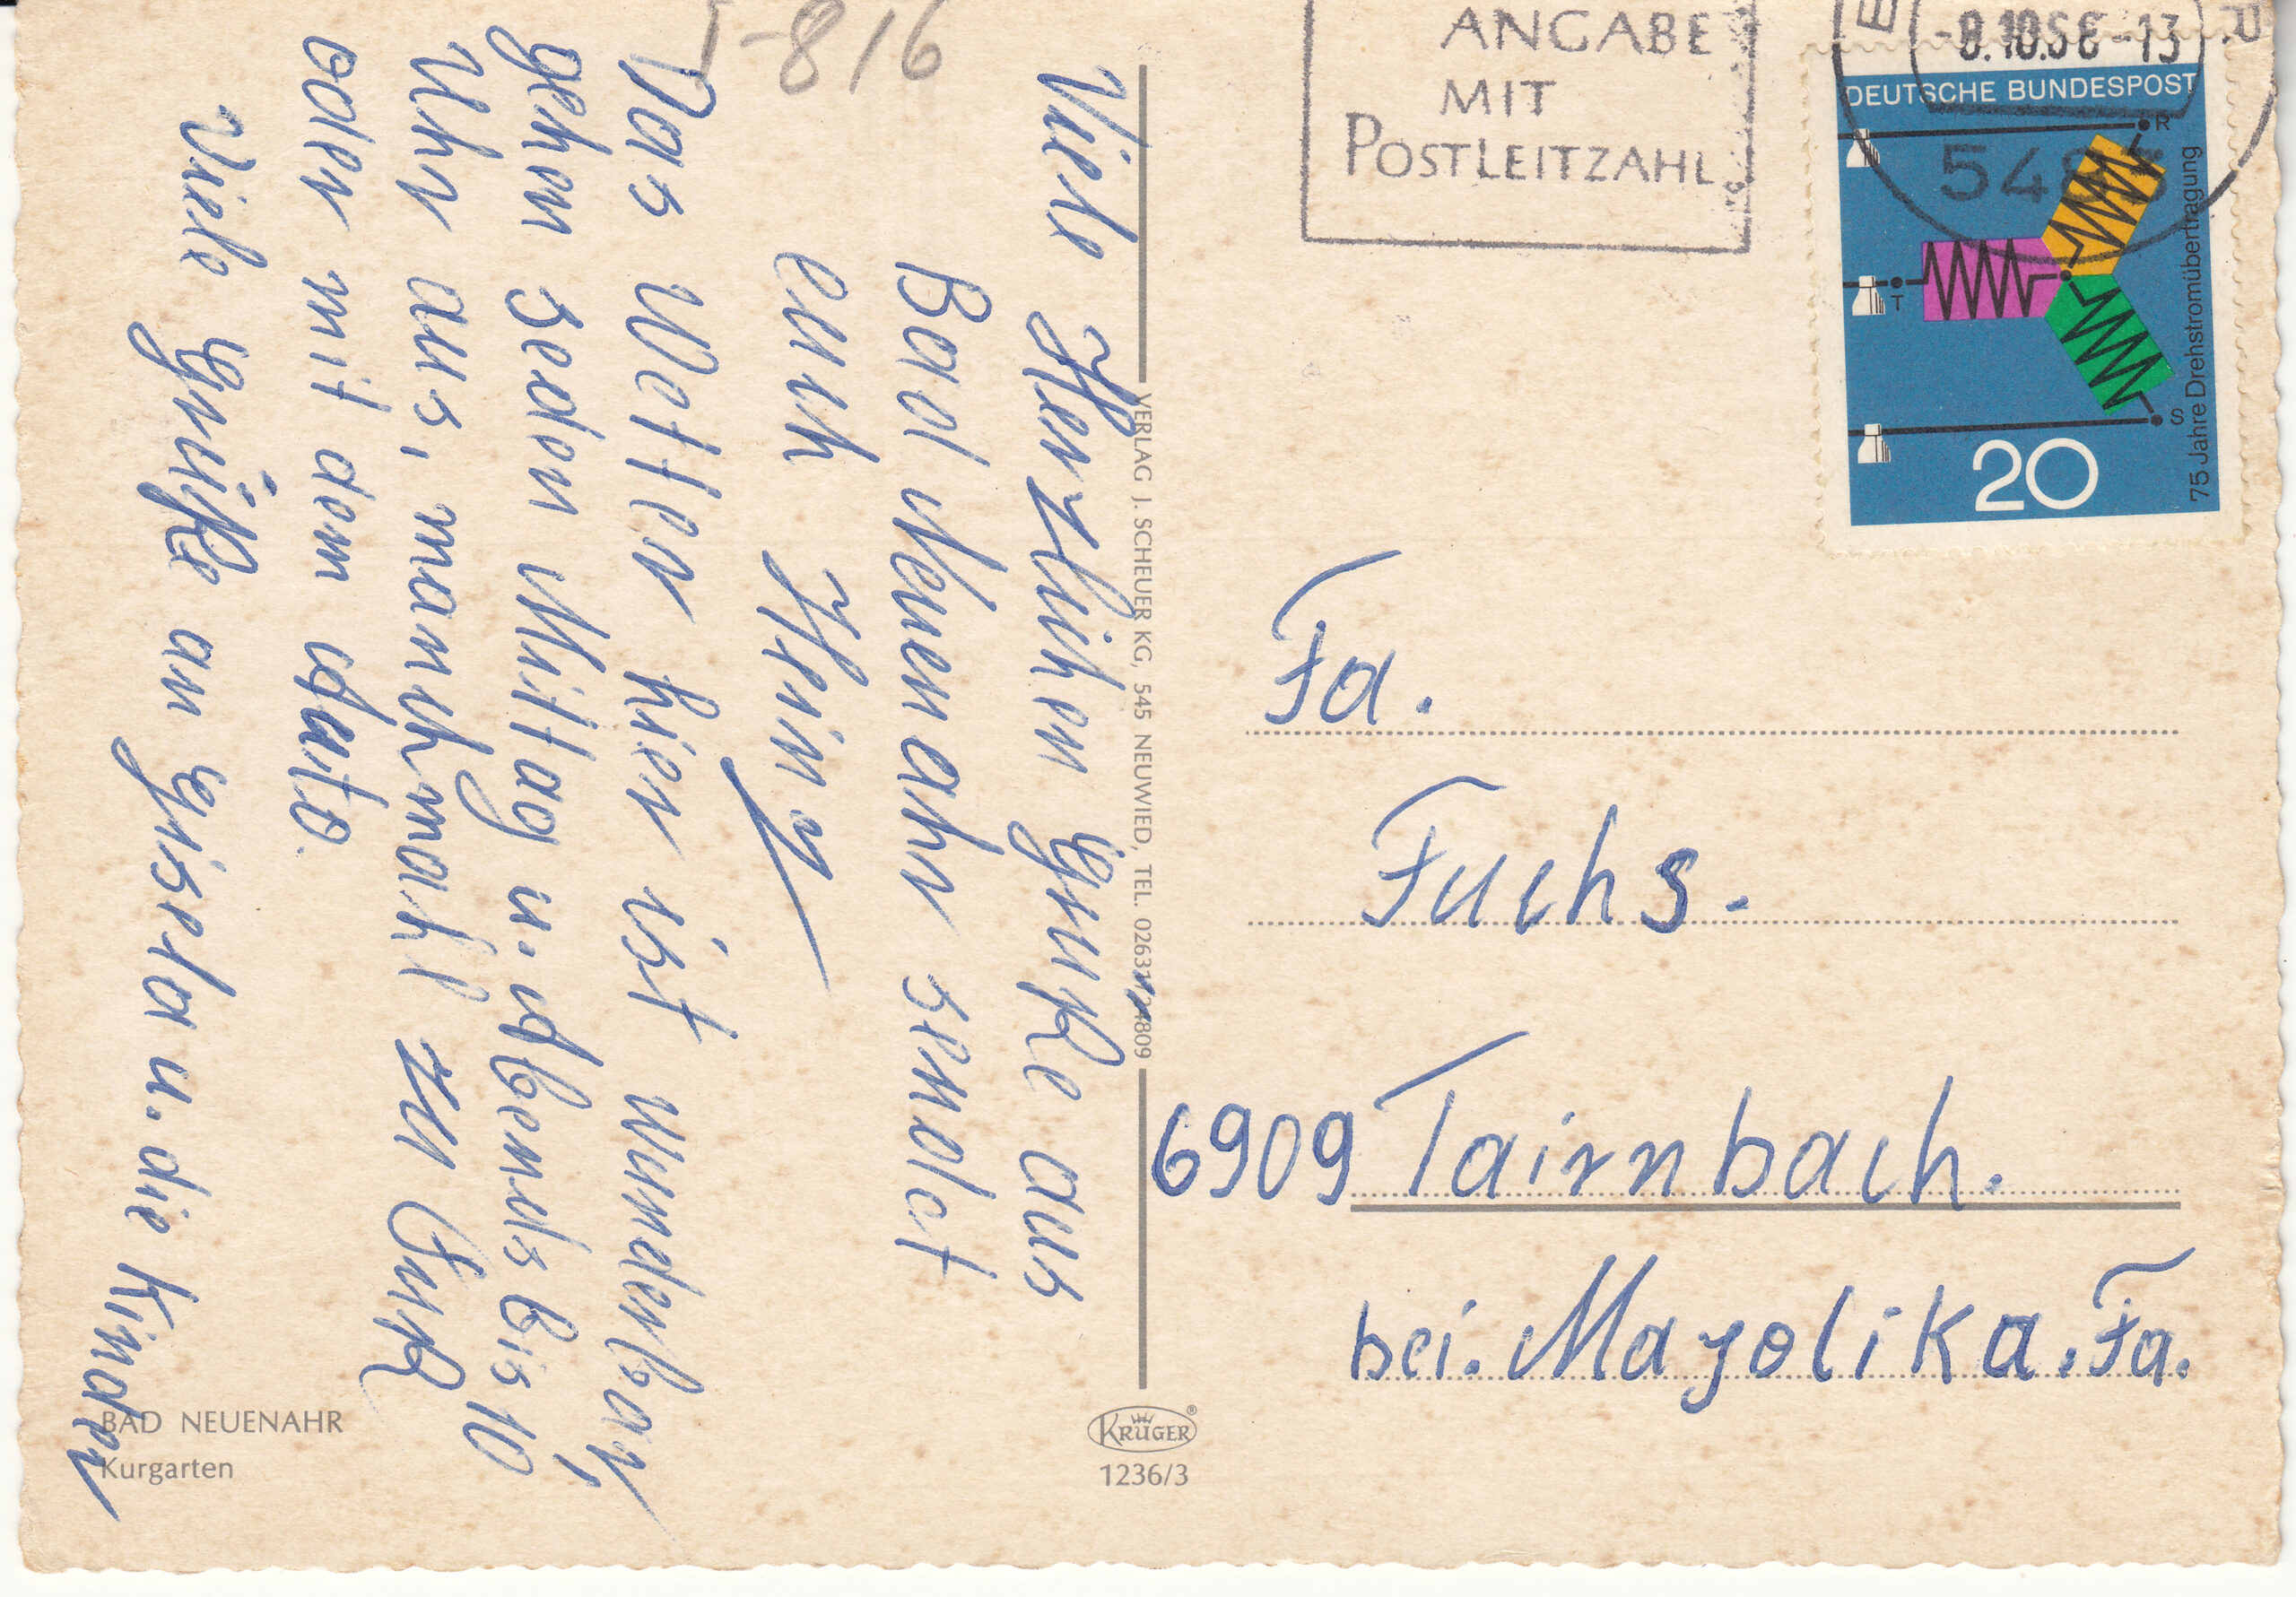 Viele Herzlichen Grüße aus
Bad Neuenahr sendet
euch Heinz
Das Wetter hier ist wunderbar,
gehen jeden Mittag u. Abends bis 10
Uhr aus, manchmahl zu Fuß
oder mit dem Auto.
Viele Grüße an Gisela u. die Kinder
BAD NEUENAHR
Kurgarten
VERLAG J. SCHEUER KG, 545 NEUWIED, TEL. 02631/24809
KRÜGER®
1236/3
ANGABE
MIT
POSTLEITZAHL
-8.10.66-13
5483
DEUTSCHE BUNDESPOST
R
T
S
75 Jahre Drehstromübertragung
20
Fa.
Fuchs.
6909 Tairnbach.
bei. Mayolika. Fa.